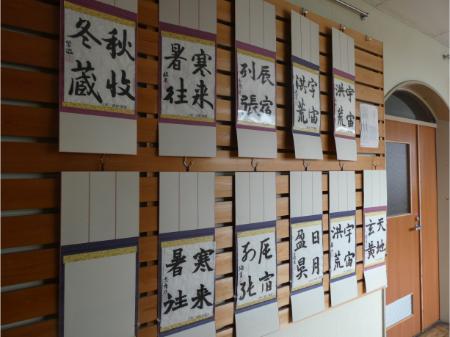 宇宙
洪荒
宇宙
洪荒
辰宿
列張
寒来
暑往
秋收
冬蔵
天地
玄黄
宇宙
洪荒
日月
盈昃
辰宿
列張
寒来
暑往